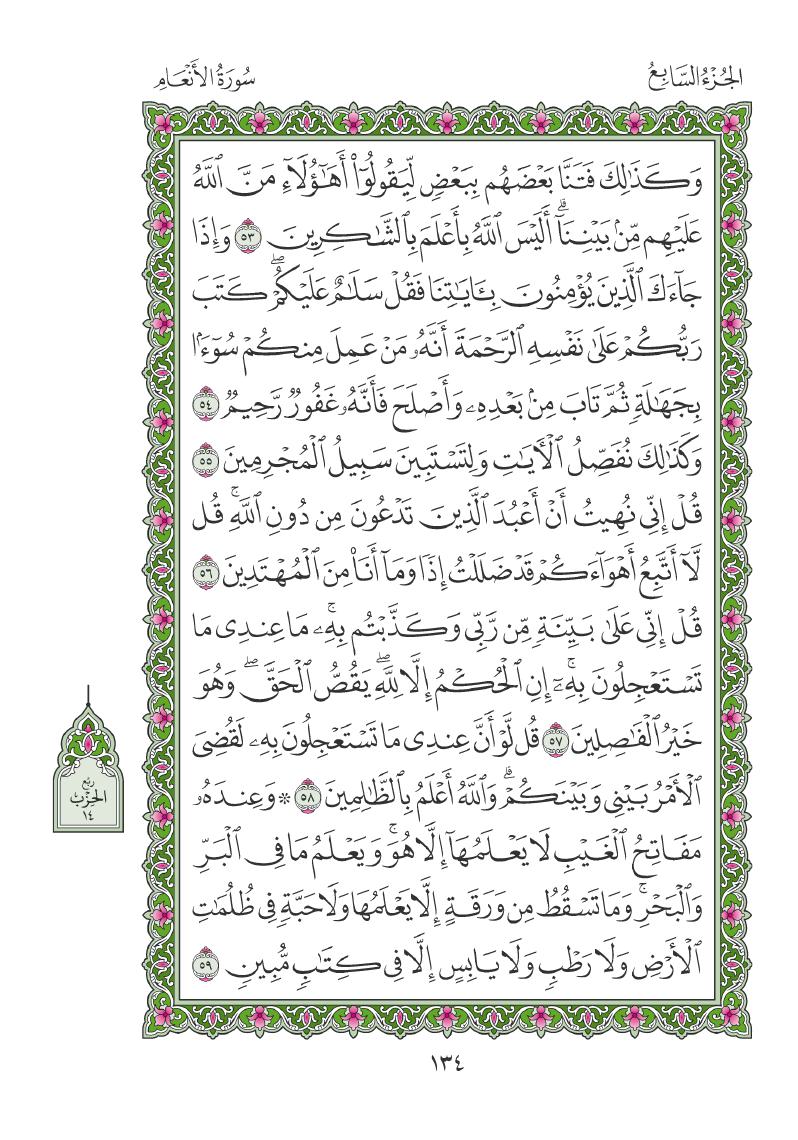 الجُزْءُ السَّابِعُ
سُورَةُ الأَنْعَامِ
وَكَذَٰلِكَ فَتَنَّا بَعْضَهُم بِبَعْضٍ لِّيَقُولُوٓا۟ أَهَـٰٓؤُلَآءِ مَنَّ ٱللَّهُ
عَلَيْهِم مِّنۢ بَيْنِنَآ ۗ أَلَيْسَ ٱللَّهُ بِأَعْلَمَ بِٱلشَّـٰكِرِينَ ٥٣ وَإِذَا
جَآءَكَ ٱلَّذِينَ يُؤْمِنُونَ بِـَٔايَـٰتِنَا فَقُلْ سَلَـٰمٌ عَلَيْكُمْ ۖ كَتَبَ
رَبُّكُمْ عَلَىٰ نَفْسِهِ ٱلرَّحْمَةَ أَنَّهُۥ مَنْ عَمِلَ مِنكُمْ سُوٓءًۢا
بِجَهَـٰلَةٍ ثُمَّ تَابَ مِنۢ بَعْدِهِۦ وَأَصْلَحَ فَأَنَّهُۥ غَفُورٌ رَّحِيمٌ ٥٤
وَكَذَٰلِكَ نُفَصِّلُ ٱلْـَٔايَـٰتِ وَلِتَسْتَبِينَ سَبِيلُ ٱلْمُجْرِمِينَ ٥٥
قُلْ إِنِّى نُهِيتُ أَنْ أَعْبُدَ ٱلَّذِينَ تَدْعُونَ مِن دُونِ ٱللَّهِ ۚ قُل
لَّآ أَتَّبِعُ أَهْوَآءَكُمْ قَدْ ضَلَلْتُ إِذًا وَمَآ أَنَا۠ مِنَ ٱلْمُهْتَدِينَ ٥٦
قُلْ إِنِّى عَلَىٰ بَيِّنَةٍ مِّن رَّبِّى وَكَذَّبْتُم بِهِۦ ۚ مَا عِندِى مَا
تَسْتَعْجِلُونَ بِهِۦٓ ۚ إِنِ ٱلْحُكْمُ إِلَّا لِلَّهِ ۖ يَقُصُّ ٱلْحَقَّ ۖ وَهُوَ
خَيْرُ ٱلْفَـٰصِلِينَ ٥٧ قُل لَّوْ أَنَّ عِندِى مَا تَسْتَعْجِلُونَ بِهِۦ لَقُضِىَ
ٱلْأَمْرُ بَيْنِى وَبَيْنَكُمْ ۗ وَٱللَّهُ أَعْلَمُ بِٱلظَّـٰلِمِينَ ٥٨ * وَعِندَهُۥ
مَفَاتِحُ ٱلْغَيْبِ لَا يَعْلَمُهَآ إِلَّا هُوَ ۚ وَيَعْلَمُ مَا فِى ٱلْبَرِّ
وَٱلْبَحْرِ ۚ وَمَا تَسْقُطُ مِن وَرَقَةٍ إِلَّا يَعْلَمُهَا وَلَا حَبَّةٍ فِى ظُلُمَـٰتِ
ٱلْأَرْضِ وَلَا رَطْبٍ وَلَا يَابِسٍ إِلَّا فِى كِتَـٰبٍ مُّبِينٍ ٥٩
رُبْع
الحِزْب
١٤
١٣٤